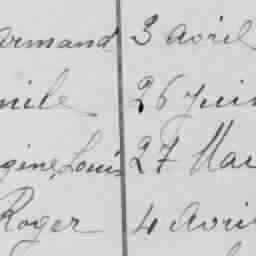 armand 3 avril
mile 26 juin
gine, Louis 27 Mar
Roger 4 Avri